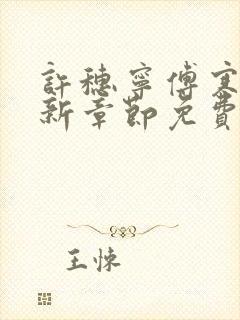 許穗寧傅寒
新章節免費
王悚